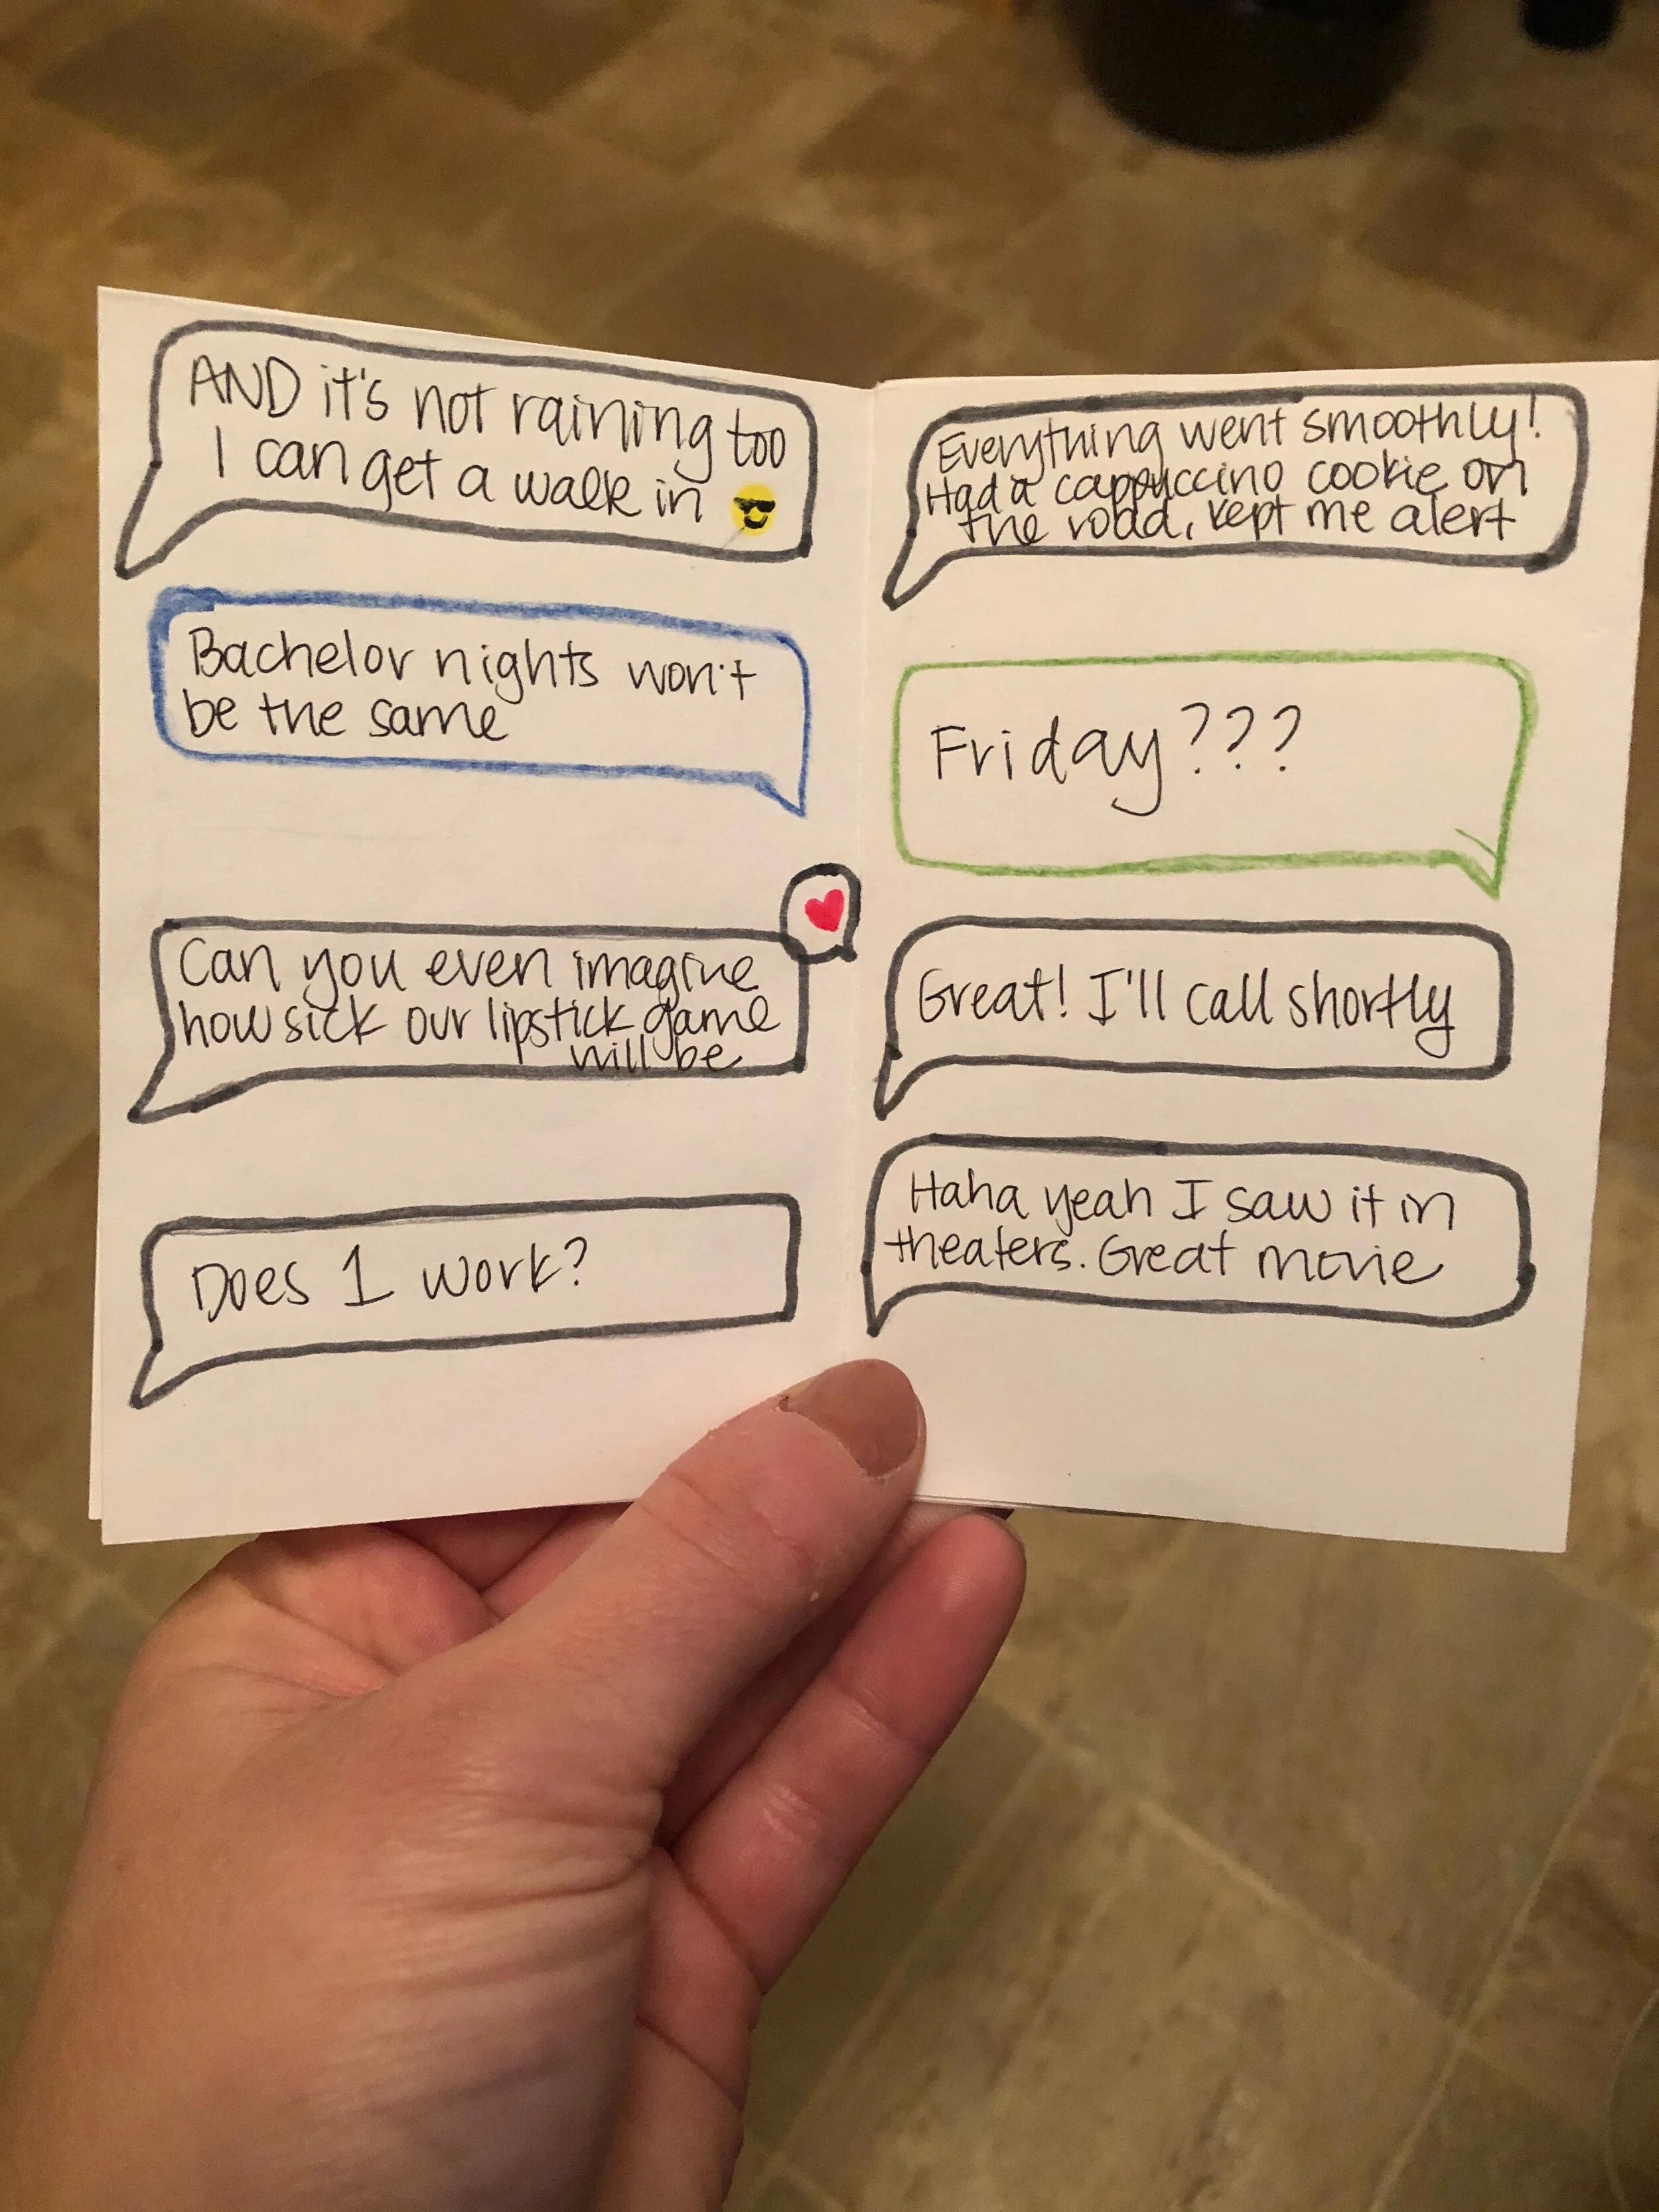 AND it's not raining too
I can get a walk in 😎
Bachelor nights won't
be the same
Can you even imagine
how sick our lipstick game
will be
Does 1 work?
Everything went smoothly!
Had a cappuccino cookie on
the road, kept me alert
Friday???
Great! I'll call shortly
Haha yeah I saw it in
theaters. Great movie